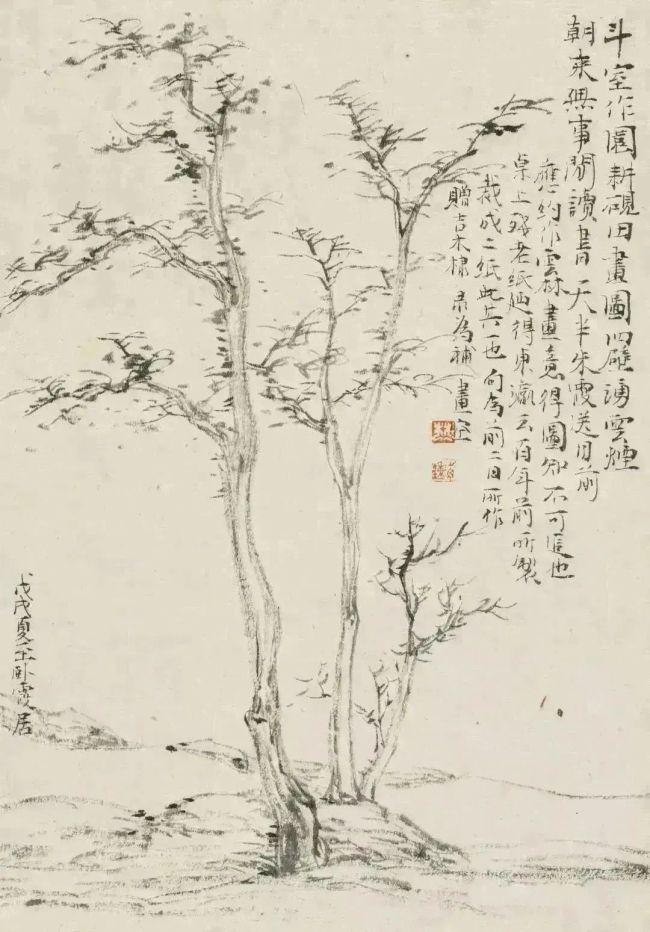 斗室作園耕硯田畫圖四壁湧雲煙
朝來無事閒讀書天半朱霞送目前
應約作雲林畫意得圖知不可追也
桌上殘老紙廼得東瀛云百年前所製
裁成二紙此其一也句為前二日所作
贈吉木棣 為補 畫
戊戌夏至卧霞居